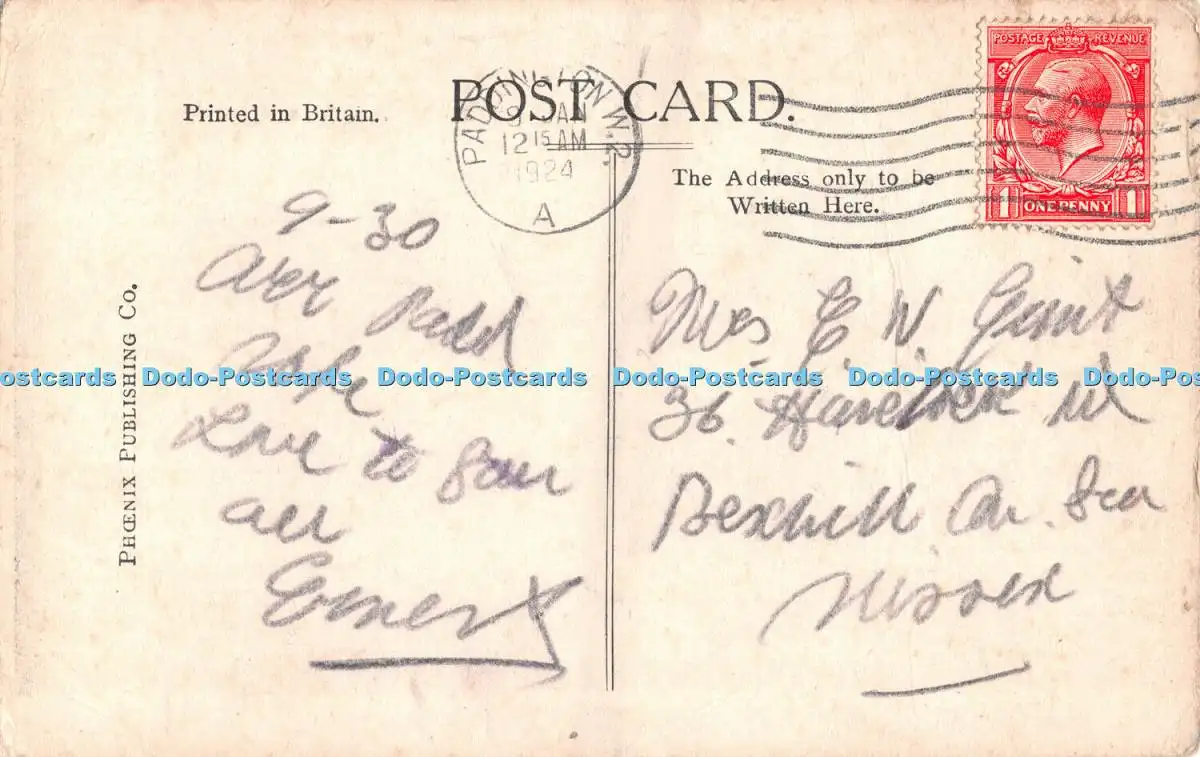 POSTAGE REVENUE
1 ONE PENNY 1
PADDINGTON W.2
12 15 AM
1924
A
POST CARD.
Printed in Britain.
The Address only to be
Written Here.
PHŒNIX PUBLISHING CO.
9-30
Padd
Love to
all
Ernest
Mrs E. W.
36. Havelock Rd
Bexhill On. Sea
Sussex
ostcards Dodo-Postcards Dodo-Postcards Dodo-Postcards Dodo-Postcards Dodo-Pos